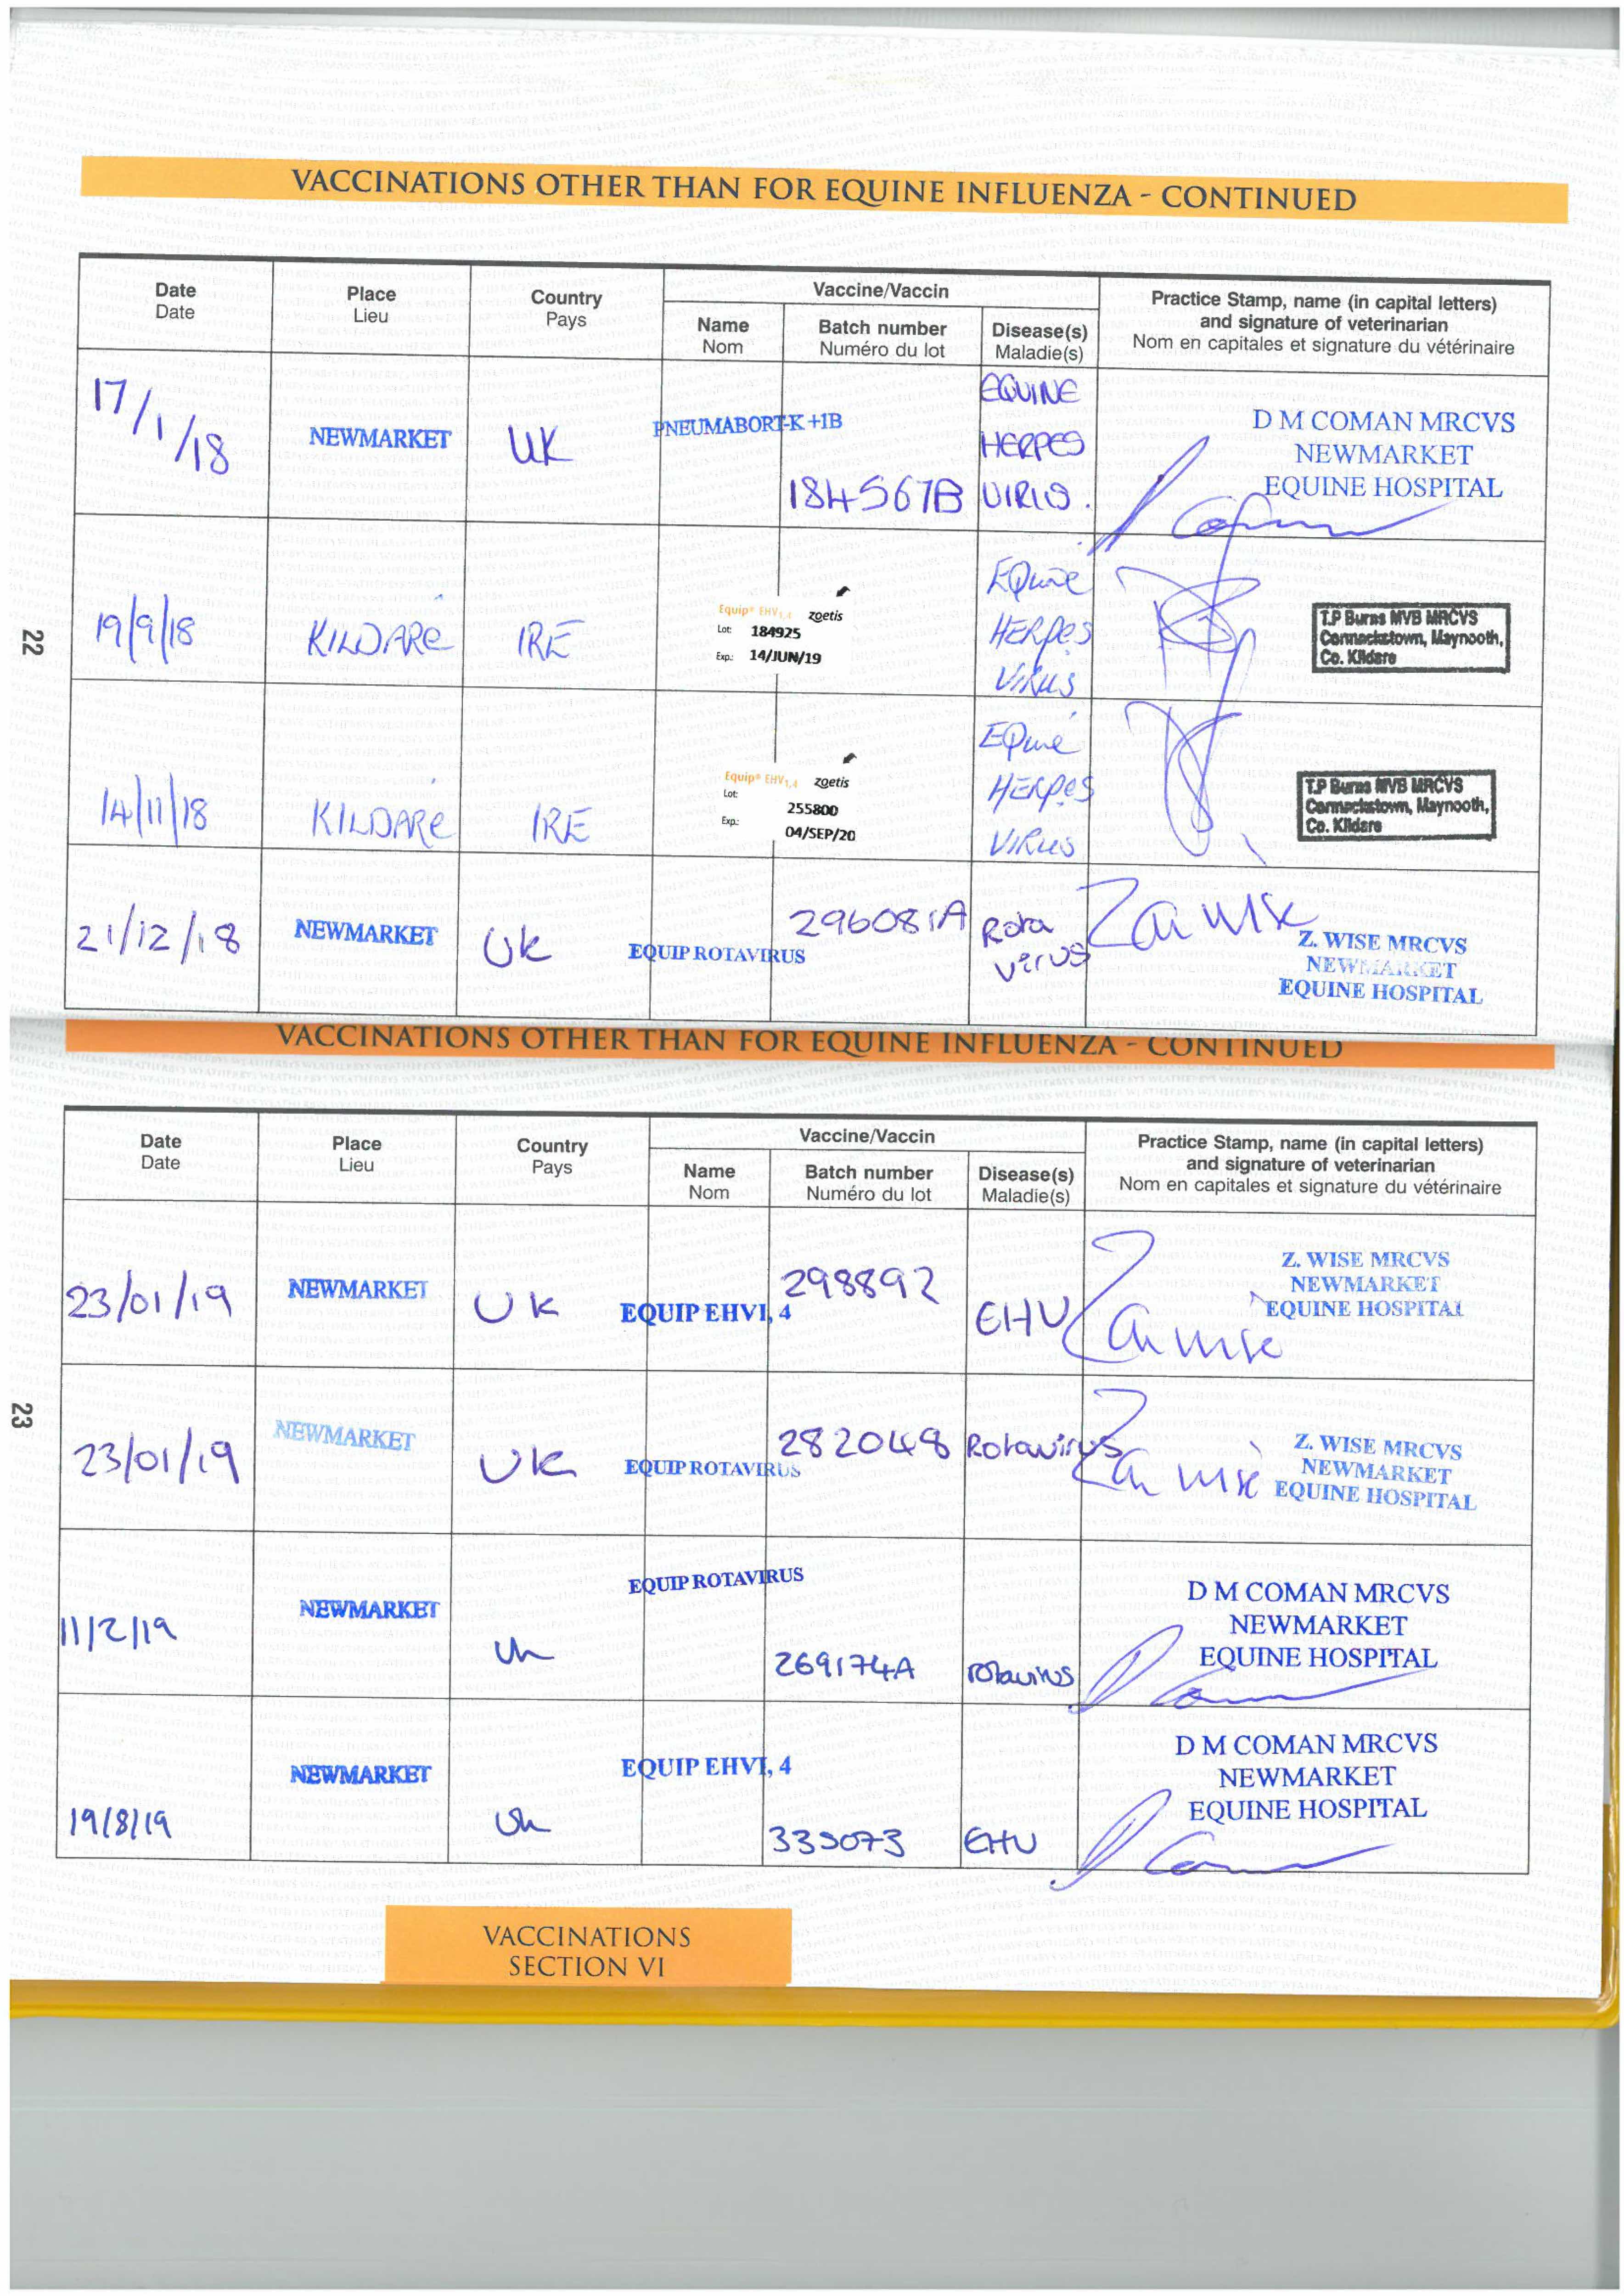 VACCINATIONS OTHER THAN FOR EQUINE INFLUENZA - CONTINUED
Date
Date
Place
Lieu
Country
Pays
Vaccine/Vaccin
Name
Nom
Batch number
Numéro du lot
Disease(s)
Maladie(s)
Practice Stamp, name (in capital letters)
and signature of veterinarian
Nom en capitales et signature du vétérinaire
17/1/18
NEWMARKET
UK
PNEUMABORT-K +1B
184567B
EQUINE
HERPES
VIRUS.
D M COMAN MRCVS
NEWMARKET
EQUINE HOSPITAL
22
19/9/18
KILDARE
IRE
Equip® EHV1,4 zoetis
Lot: 184925
Exp.: 14/JUN/19
Equine
HERPES
VIRUS
T.P Burns MVB MRCVS
Carmackstown, Maynooth,
Co. Kildare
14/11/18
KILDARE
IRE
Equip® EHV1,4 zoetis
Lot:
255800
Exp.:
04/SEP/20
Equine
HERPES
VIRUS
T.P Burns MVB MRCVS
Carmackstown, Maynooth,
Co. Kildare
21/12/18
NEWMARKET
UK
EQUIP ROTAVIRUS
296081A
Rota
virus
Z. WISE MRCVS
NEWMARKET
EQUINE HOSPITAL
VACCINATIONS OTHER THAN FOR EQUINE INFLUENZA - CONTINUED
Date
Date
Place
Lieu
Country
Pays
Vaccine/Vaccin
Name
Nom
Batch number
Numéro du lot
Disease(s)
Maladie(s)
Practice Stamp, name (in capital letters)
and signature of veterinarian
Nom en capitales et signature du vétérinaire
23/01/19
NEWMARKET
UK
EQUIP EHV1, 4
298892
EHV
Z. WISE MRCVS
NEWMARKET
EQUINE HOSPITAL
23
23/01/19
NEWMARKET
UK
EQUIP ROTAVIRUS
282048
Rotavirus
Z. WISE MRCVS
NEWMARKET
EQUINE HOSPITAL
11/2/19
NEWMARKET
UK
EQUIP ROTAVIRUS
269174A
rotavirus
D M COMAN MRCVS
NEWMARKET
EQUINE HOSPITAL
19/8/19
NEWMARKET
UK
EQUIP EHV1, 4
335073
EHV
D M COMAN MRCVS
NEWMARKET
EQUINE HOSPITAL
VACCINATIONS
SECTION VI